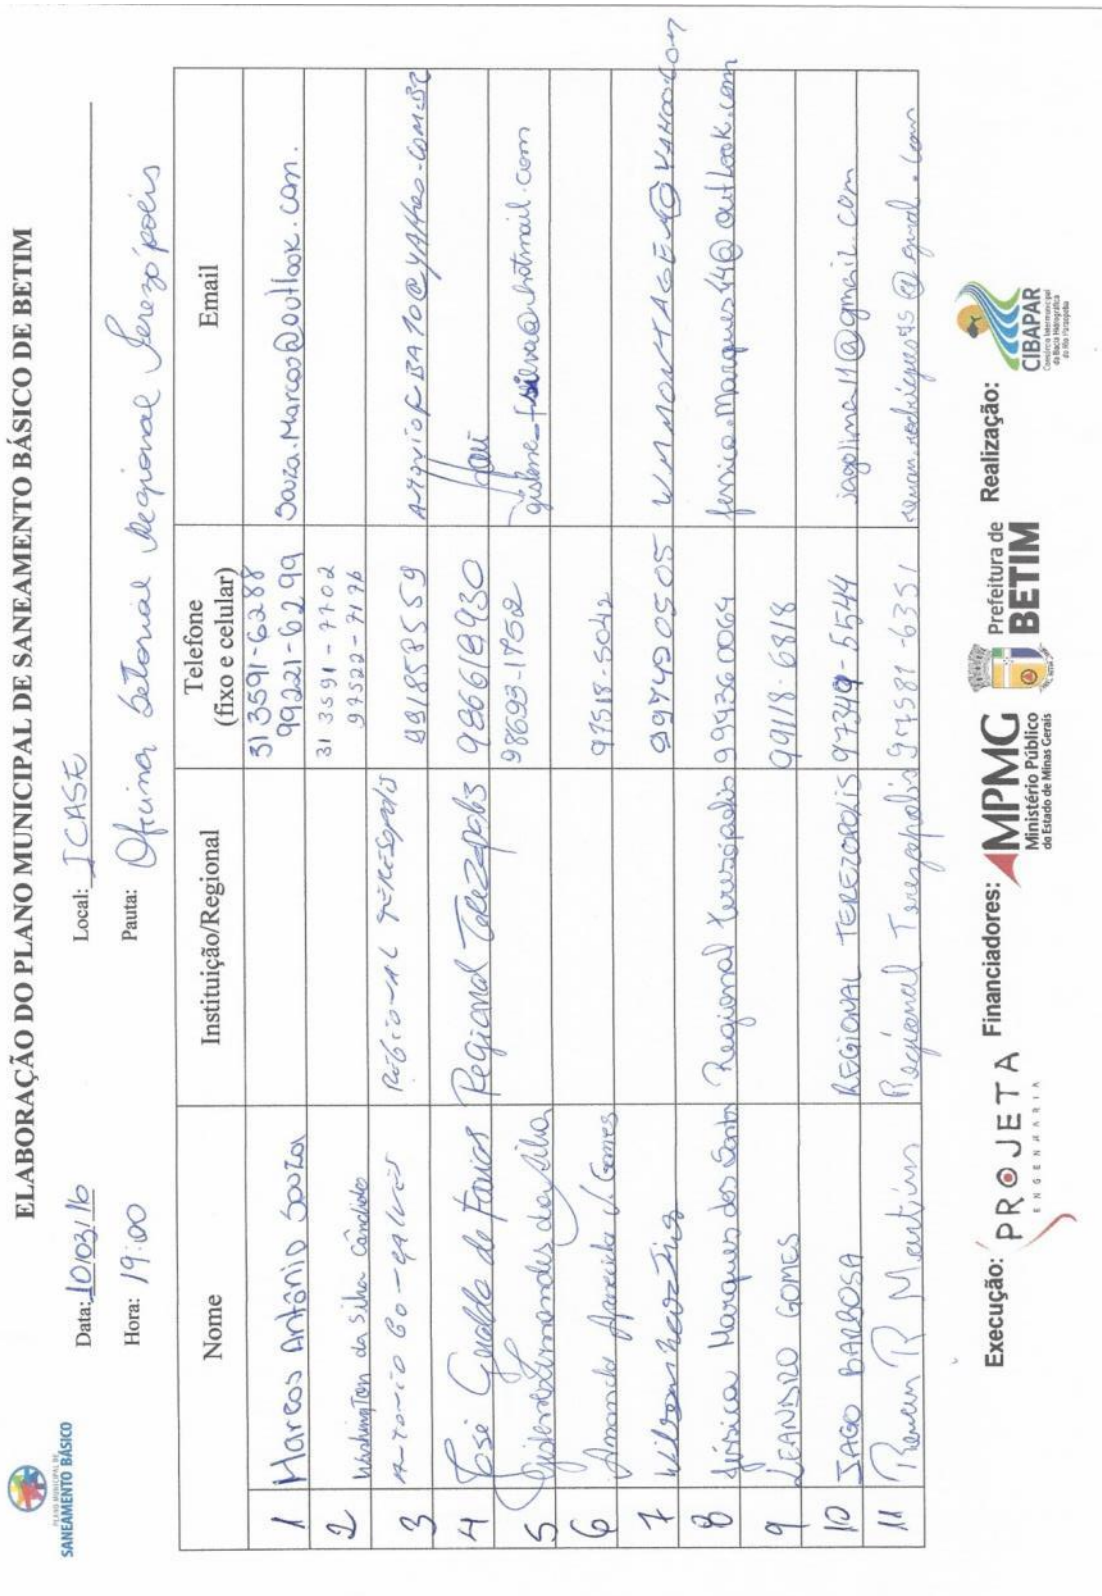 PLANO MUNICIPAL DE
SANEAMENTO BÁSICO
ELABORAÇÃO DO PLANO MUNICIPAL DE SANEAMENTO BÁSICO DE BETIM
Data: 10/03/16 Local: ICASE
Hora: 19:00 Pauta: Oficina Setorial Regional Terezópolis
Nome Instituição/Regional Telefone (fixo e celular) Email
1 Marcos Antônio Souza 31 3591-6288 99221-6299 Souza.Marcos@outlook.com.
2 Washington da Silva Cândido 31 3591-7702 97522-7176
3 REGIONAL TERESOPOLIS
4 José Geraldo de Farias Regional Terezopolis 986618930
5 Gislene Fernandes da Silva 98693-1752 gislene_fsilva@hotmail.com
6 Amanda Aparecida Gomes 97518-5042
7 Wilson 997420505 WMMONTAGEM@YAHOO.COM
8 Jéssica Marques dos Santos Regional Teresópolis 999360064 jessica.Marques44@outlook.com
9 LEANDRO GOMES 99118-6818
10 IAGO BARBOSA REGIONAL TEREZOPOLIS 97349-5544 iagolima11@gmail.com
11 Renan R Martins Regional Terezopolis 97581-6351
Execução: PROJETA ENGENHARIA Financiadores: MPMG Ministério Público do Estado de Minas Gerais Prefeitura de BETIM Realização: CIBAPAR Consórcio Intermunicipal da Bacia Hidrográfica do Rio Paraopeba